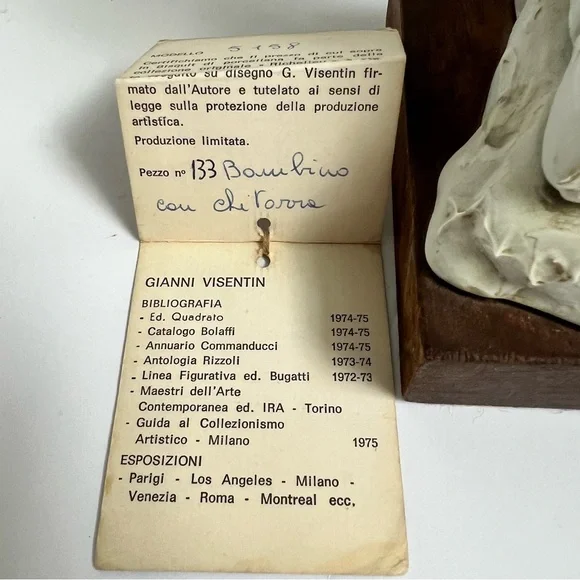 MODELLO 5198
Certifichiamo che il pezzo di cui sopra
in Bisquit di porcellana fa parte della
collezione originale « Richelieu » e
eseguito su disegno G. Visentin fir-
mato dall'Autore e tutelato ai sensi di
legge sulla protezione della produzione
artistica.
Produzione limitata.
Pezzo n° 133 Bambino
con chitarra
GIANNI VISENTIN
BIBLIOGRAFIA
- Ed. Quadrato 1974-75
- Catalogo Bolaffi 1974-75
- Annuario Commanducci 1974-75
- Antologia Rizzoli 1973-74
- Linea Figurativa ed. Bugatti 1972-73
- Maestri dell'Arte
Contemporanea ed. IRA - Torino
- Guida al Collezionismo
Artistico - Milano 1975
ESPOSIZIONI
- Parigi - Los Angeles - Milano -
Venezia - Roma - Montreal ecc.